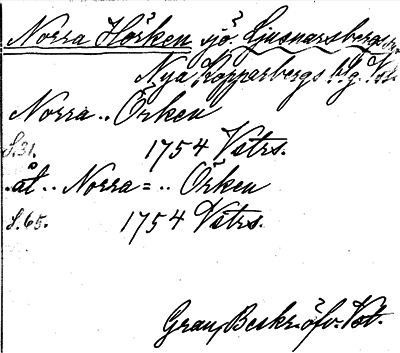 Norra Hörken sjö. Ljusnarsbergs
Nya Kopparbergs blg. Vst.
Norra .. Örken
S. 31. 1754 Vstrs.
åt .. Norra = .. Örken
S. 65. 1754 Vstrs.
Grau, Beskr. öfv. Vst.